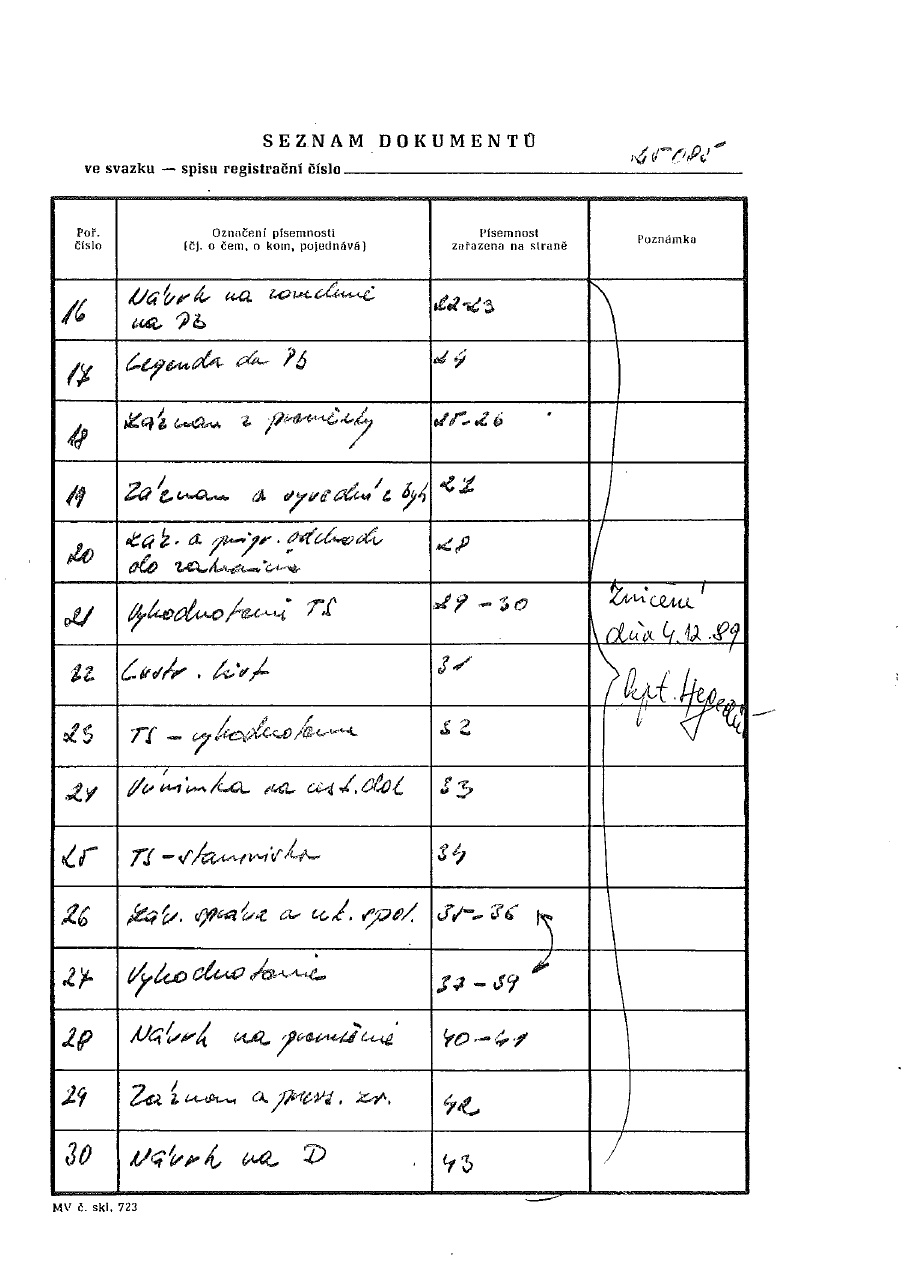 SEZNAM DOKUMENTŮ
ve svazku — spisu registrační číslo 25085
Poř. číslo
Označení písemnosti
(čj. o čem, o kom, pojednává)
Písemnost
zařazena na straně
Poznámka
16 Návrh na zavedenie
na PB 22-23
17 Legenda do PB 24
18 Záznam z previerky 25-26
19 Záznam o vyvední z 27
20 Záz. o prípr. odchode
do zahraničia 28
21 Vyhodnotenie TS 29-30
Zničené
dňa 4.12.89
22 Lustr. list 31
kpt.
23 TS - vyhodnotenie 32
24 Výnimka na 33
25 TS - stanoviska 34
26 Záv. správa o uk. spol. 35-36
27 Vyhodnotenie 37-39
28 Návrh na 40-41
29 Záznam o zv. 42
30 Návrh na D 43
MV č. skl. 723